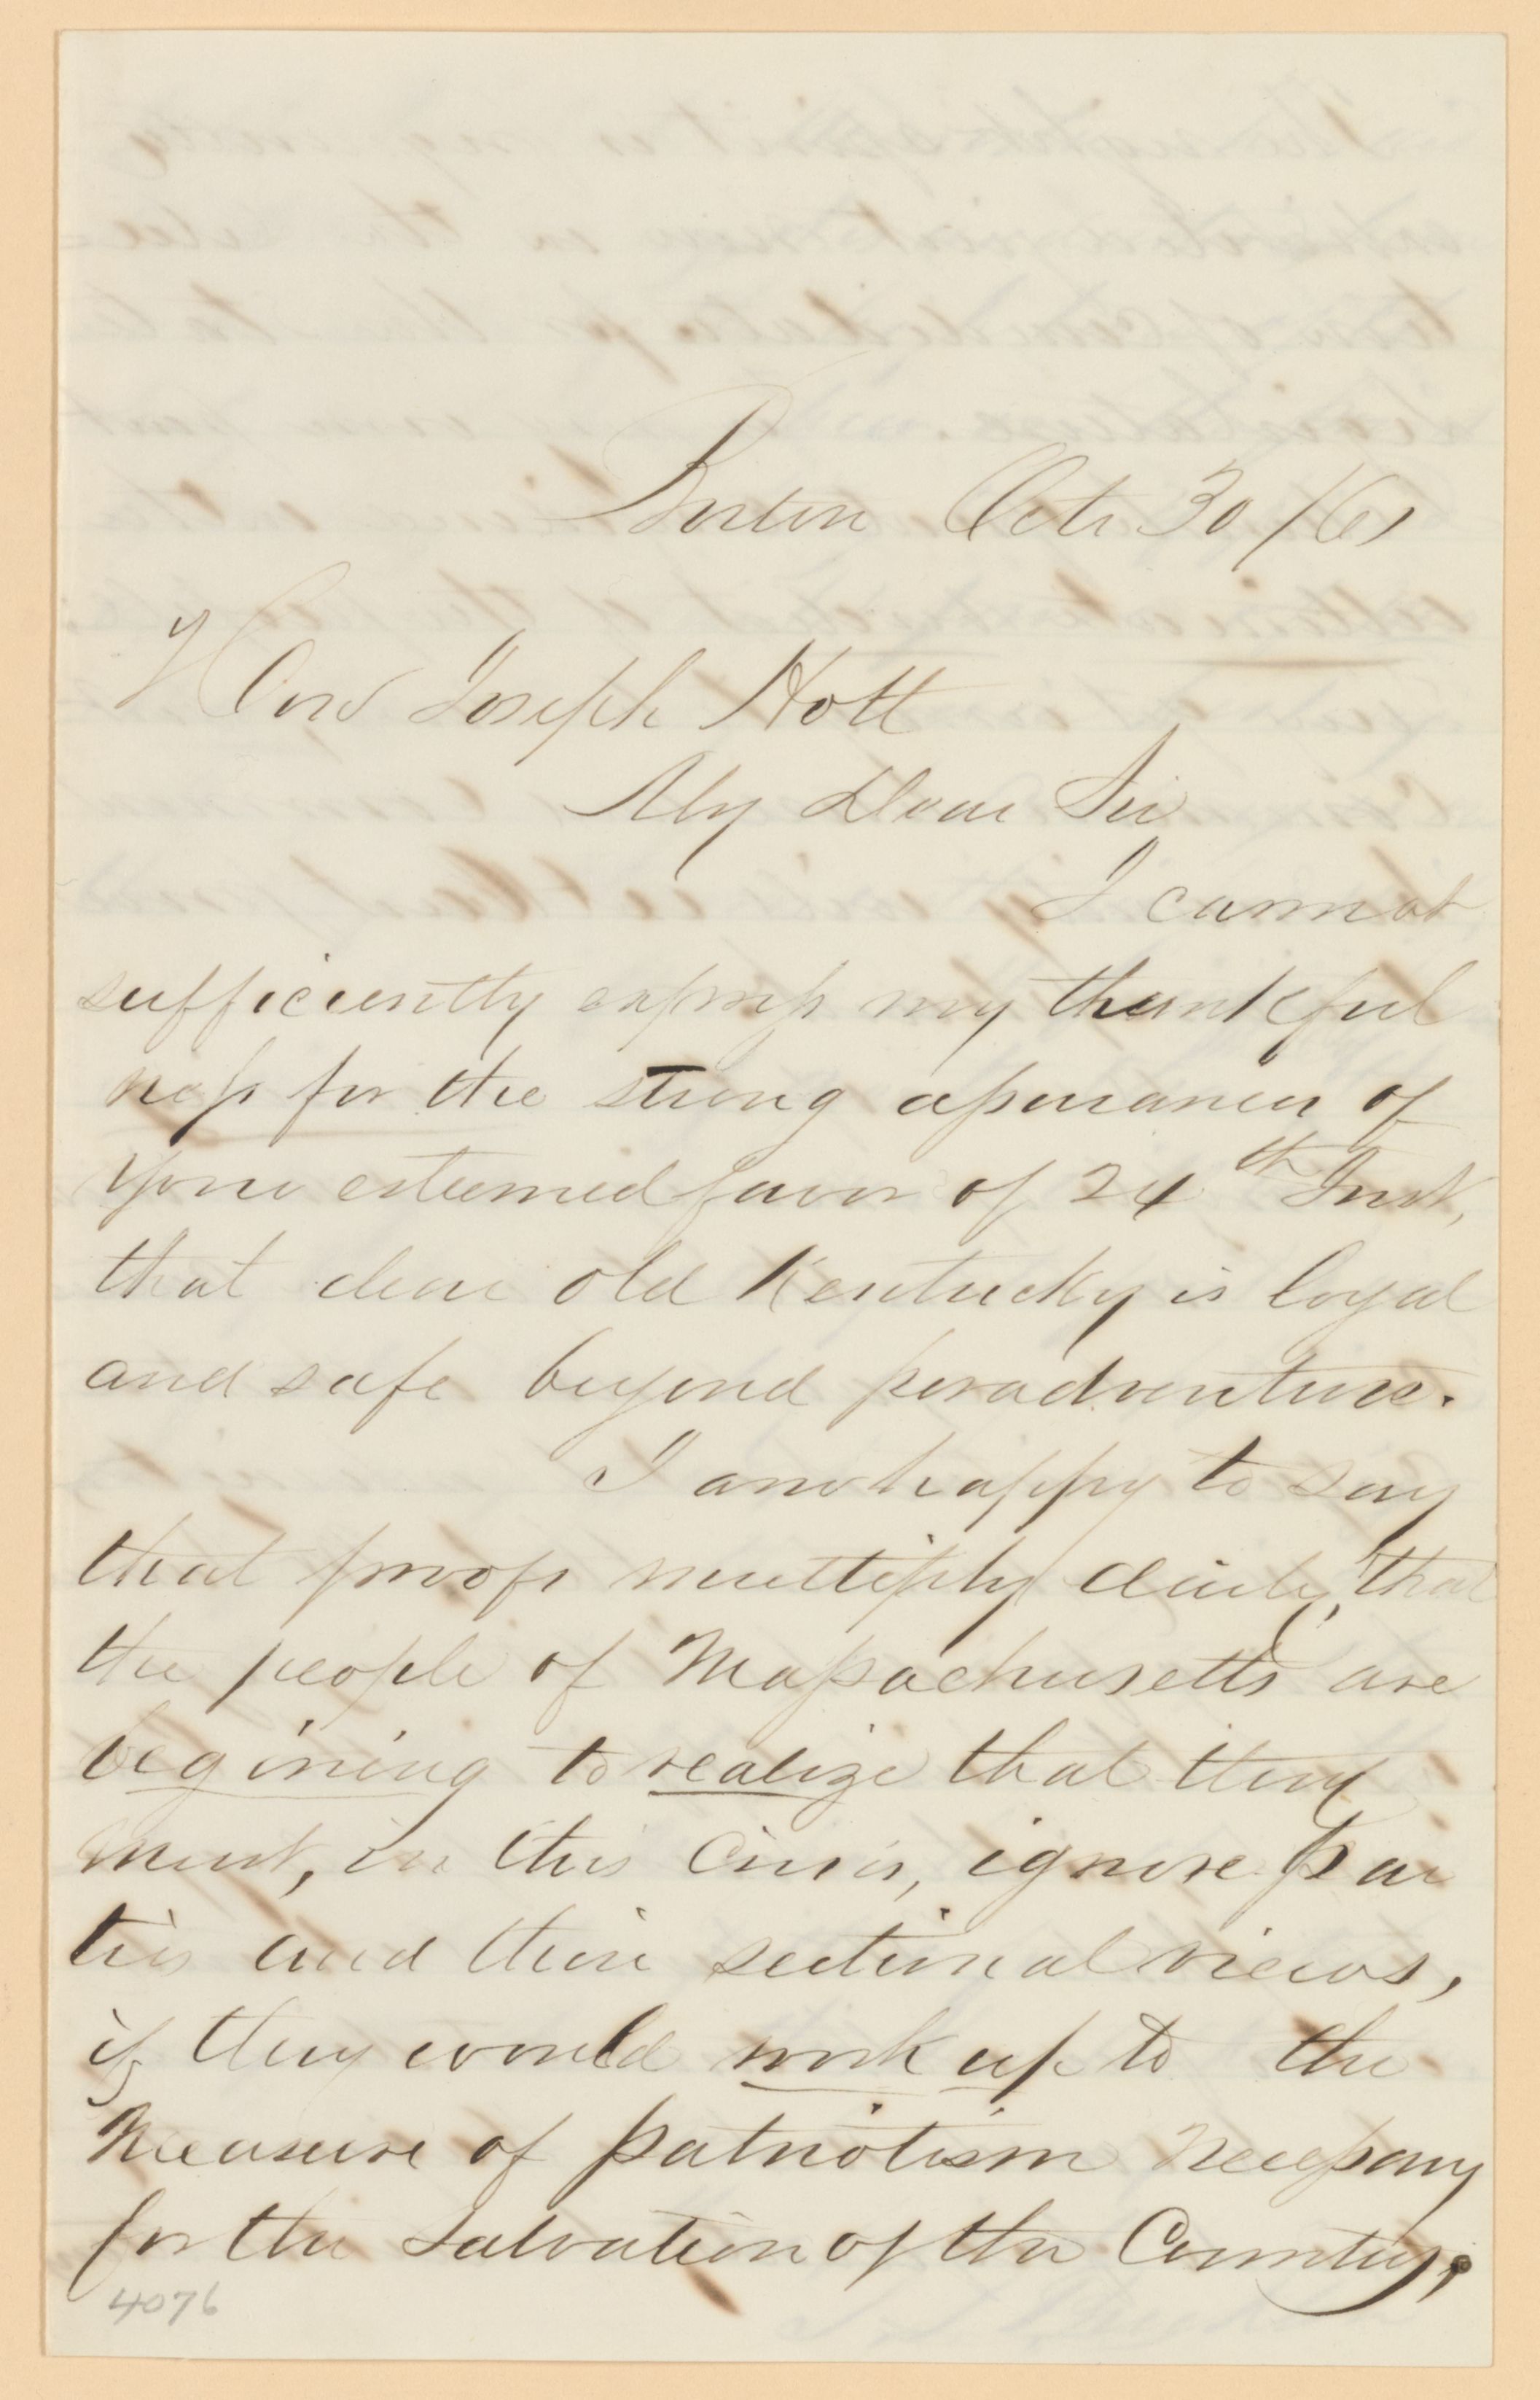 Boston Oct 30/61
Hon Joseph Holt
My Dear Sir
I cannot
sufficiently express my thankful
ness for the strong assurance of
your esteemed favor of 24th Inst,
that dear old Kentucky is loyal
and safe beyond peradventure.
I am happy to say
that proofs multiply daily, that
the people of Massachusetts are
begining to realize that they
must, in this Crisis, ignore par
ties and their sectional views,
if they would work up to the
measure of patriotism necessary
for the salvation of the Country;
4076